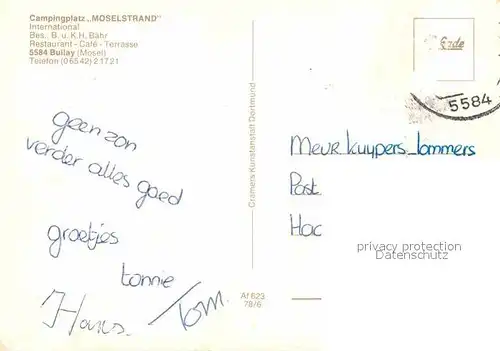 Campingplatz „MOSELSTRAND"
International
Bes. B. u. K.H. Bähr
Restaurant - Café - Terrasse
5584 Bullay (Mosel)
Telefon (06542) 21721
geen zon
verder alles goed
groetjes
Lonnie
Hans Tom.
Cramers Kunstanstalt Dortmund
Af 623
78/6
5584
Meur Kuypers_Lommers
Post
Hac
privacy protection
Datenschutz